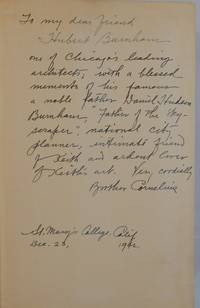 To my dear friend
Hubert Burnham
one of Chicago's leading
architects, with a blessed
memento of his famous
a noble father Daniel Hudson
Burnham, "Father of the Sky-
scraper", national city
planner, intimate friend
of Keith and ardent lover
of Keith's art. Very cordially
Brother Cornelius
St. Mary's College, Calif
Dec. 25,